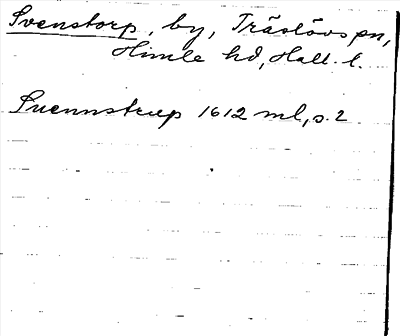 Svenstorp, by, Träslövs pn,
Himle hd, Hall. l.
Suennstrup 1612 ml, s. 2